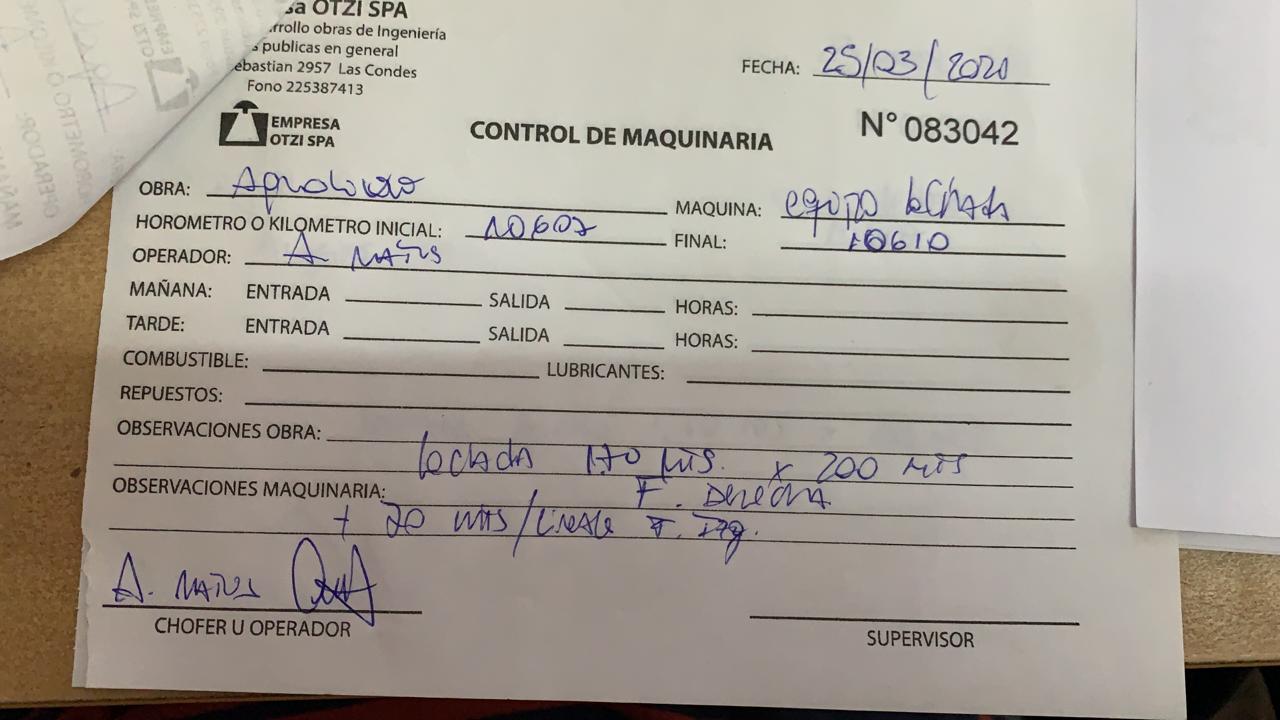 sa OTZI SPA
rrollo obras de Ingeniería
s publicas en general
ebastian 2957 Las Condes
Fono 225387413
EMPRESA
OTZI SPA
FECHA: 25/03/2020
CONTROL DE MAQUINARIA
N° 083042
OBRA:
MAQUINA: equipo lechada
HOROMETRO O KILOMETRO INICIAL: 10607
FINAL: 10610
OPERADOR: A MATUS
MAÑANA: ENTRADA SALIDA HORAS:
TARDE: ENTRADA SALIDA HORAS:
COMBUSTIBLE: LUBRICANTES:
REPUESTOS:
OBSERVACIONES OBRA:
lechada 1.70 MTS. x 200 MTS
OBSERVACIONES MAQUINARIA: F. Derecha
+ 20 MTS/Lineale F. Izq.
A. MATUS
CHOFER U OPERADOR
SUPERVISOR